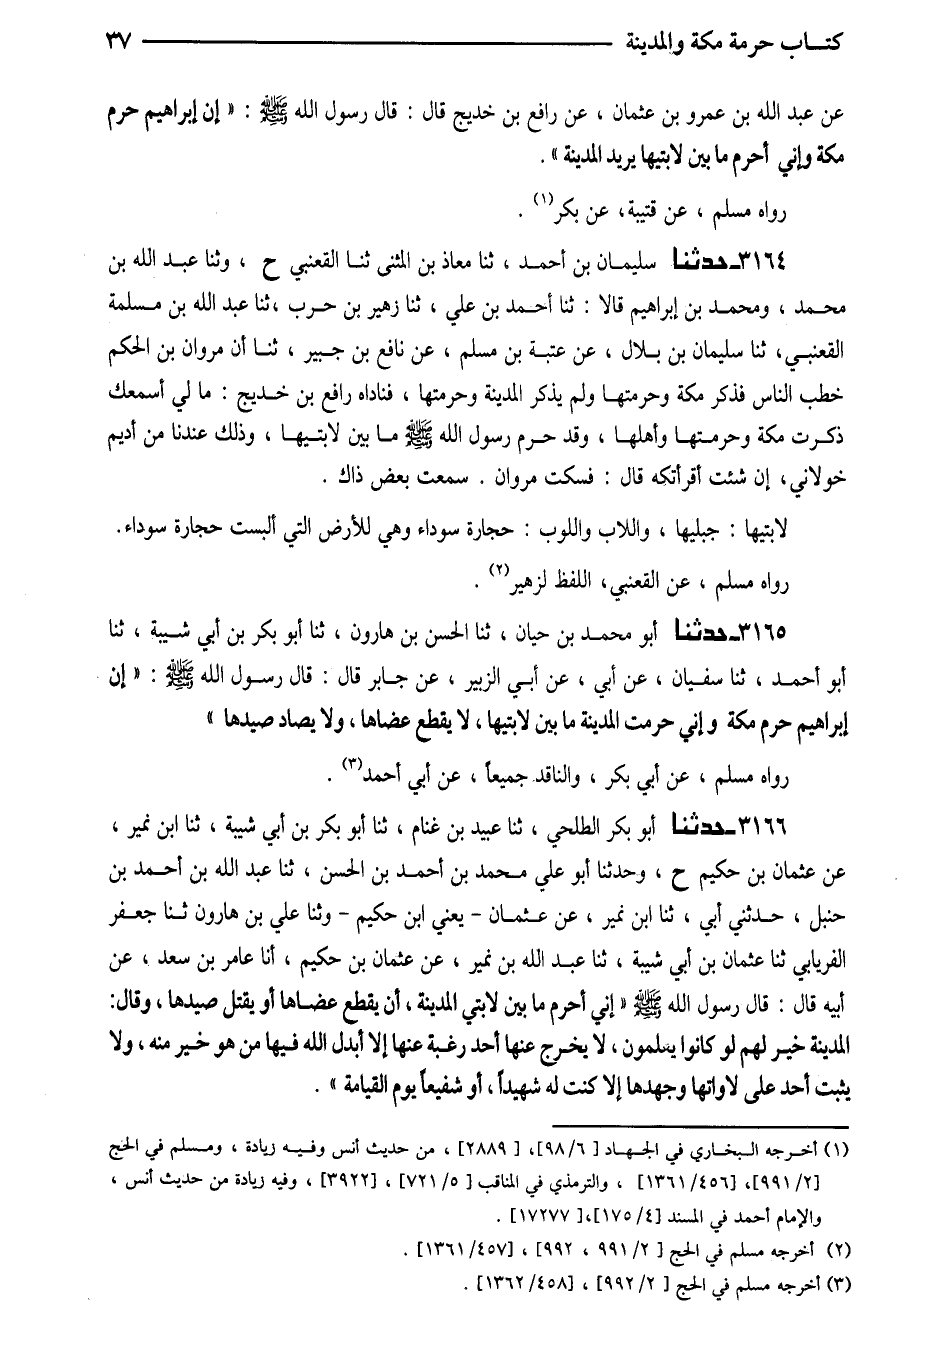 كتاب حرمة مكة والمدينة ٣٧
عن عبد الله بن عمرو بن عثمان ، عن رافع بن خديج قال : قال رسول الله ﷺ : « إن إبراهيم حرم
مكة وإني أحرم ما بين لابتيها يريد المدينة » .
رواه مسلم ، عن قتيبة، عن بكر(١) .
٣١٦٤ـ حدثنا سليمان بن أحمد ، ثنا معاذ بن المثنى ثنا القعنبي ح ، وثنا عبد الله بن
محمد ، ومحمد بن إبراهيم قالا : ثنا أحمد بن علي ، ثنا زهير بن حرب ،ثنا عبد الله بن مسلمة
القعنبي، ثنا سليمان بن بلال ، عن عتبة بن مسلم ، عن نافع بن جبير ، ثنا أن مروان بن الحكم
خطب الناس فذكر مكة وحرمتها ولم يذكر المدينة وحرمتها ، فناداه رافع بن خديج : ما لي أسمعك
ذكرت مكة وحرمتها وأهلها ، وقد حرم رسول الله ﷺ ما بين لابتيها ، وذلك عندنا من أديم
خولاني، إن شئت أقرأتكه قال : فسكت مروان . سمعت بعض ذاك .
لابتيها : جبليها ، واللاب واللوب : حجارة سوداء وهي للأرض التي ألبست حجارة سوداء.
رواه مسلم ، عن القعنبي، اللفظ لزهير(٢) .
٣١٦٥ـ حدثنا أبو محمد بن حيان ، ثنا الحسن بن هارون ، ثنا أبو بكر بن أبي شيبة ، ثنا
أبو أحمد ، ثنا سفيان ، عن أبي ، عن أبي الزبير ، عن جابر قال : قال رسول الله ﷺ : « إن
إبراهيم حرم مكة وإني حرمت المدينة ما بين لابتيها ، لا يقطع عضاها ، ولا يصاد صيدها »
رواه مسلم ، عن أبي بكر ، والناقد جميعاً ، عن أبي أحمد(٣) .
٣١٦٦ـ حدثنا أبو بكر الطلحي ، ثنا عبيد بن غنام ، ثنا أبو بكر بن أبي شيبة ، ثنا ابن نمير ،
عن عثمان بن حكيم ح ، وحدثنا أبو علي محمد بن أحمد بن الحسن ، ثنا عبد الله بن أحمد بن
حنبل ، حدثني أبي ، ثنا ابن نمير ، عن عثمان - يعني ابن حكيم - وثنا علي بن هارون ثنا جعفر
الفريابي ثنا عثمان بن أبي شيبة ، ثنا عبد الله بن نمير ، عن عثمان بن حكيم ، أنا عامر بن سعد ، عن
أبيه قال : قال رسول الله ﷺ « إني أحرم ما بين لابتي المدينة ، أن يقطع عضاها أو يقتل صيدها ، وقال:
المدينة خير لهم لو كانوا يعلمون ، لا يخرج عنها أحد رغبة عنها إلا أبدل الله فيها من هو خير منه ، ولا
يثبت أحد على لاواتها وجهدها إلا كنت له شهيداً ، أو شفيعاً يوم القيامة » .
(١) أخرجه البخاري في الجهاد [ ٩٨/٦]، [ ٢٨٨٩] ، من حديث أنس وفيه زيادة ، ومسلم في الحج
[٩٩١/٢]، [١٣٦١/٤٥٦] ، والترمذي في المناقب [ ٧٢١/٥] ، [٣٩٢٢] ، وفيه زيادة من حديث أنس ،
والإمام أحمد في المسند [١٧٥/٤]،[ ١٧٢٧٧] .
(٢) أخرجه مسلم في الحج [ ٩٩١/٢ ، ٩٩٢] ، [١٣٦١/٤٥٧] .
(٣) أخرجه مسلم في الحج [ ٩٩٢/٢] ، [١٣٦٢/٤٥٨] .